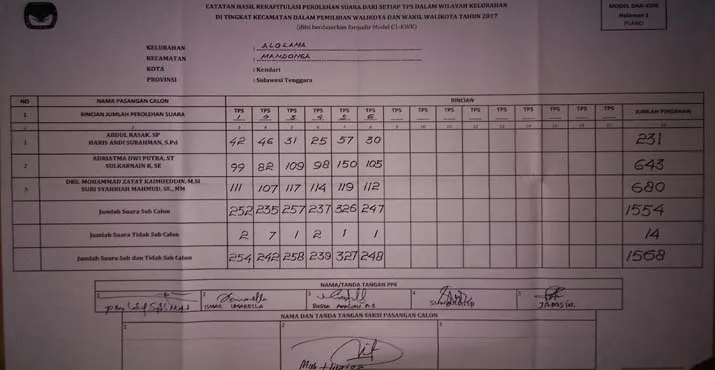 CATATAN HASIL REKAPITULASI PEROLEHAN SUARA DARI SETIAP TPS DALAM WILAYAH KELURAHAN
DI TINGKAT KECAMATAN DALAM PEMILIHAN WALIKOTA DAN WAKIL WALIKOTA TAHUN 2017
(diisi berdasarkan formulir Model C1-KWK)
MODEL DAA-KWK
Halaman 2
PLANO
KELURAHAN : ALOLAMA
KECAMATAN : MANDONGA
KOTA : Kendari
PROVINSI : Sulawesi Tenggara
NO NAMA PASANGAN CALON RINCIAN
1 RINCIAN JUMLAH PEROLEHAN SUARA TPS 1 TPS 2 TPS 3 TPS 4 TPS 5 TPS 6 TPS TPS TPS TPS TPS TPS TPS TPS TPS JUMLAH PINDAHAN
1 2 3 4 5 6 7 8 9 10 11 12 13 14 15 16 17 18
1 ABDUL RASAK, SP
HARIS ANDI SURAHMAN, S.Pd 42 46 31 25 57 30 231
2 ADRIATMA DWI PUTRA, ST
SULKARNAIN K, SE 99 82 109 98 150 105 643
3 DRS. MOHAMMAD ZAYAT KAIMOEDDIN, M.Si
SURI SYAHRIAH MAHMUD, SE., MM 111 107 117 114 119 112 680
Jumlah Suara Sah Calon 252 235 257 237 326 247 1554
Jumlah Suara Tidak Sah Calon 2 7 1 2 1 1 14
Jumlah Suara Sah dan Tidak Sah Calon 254 242 258 239 327 248 1568
NAMA/TANDA TANGAN PPK
1 2 3 4 5
ISMAR UMARELLA JAMSIR
NAMA DAN TANDA TANGAN SAKSI PASANGAN CALON
1 2 3